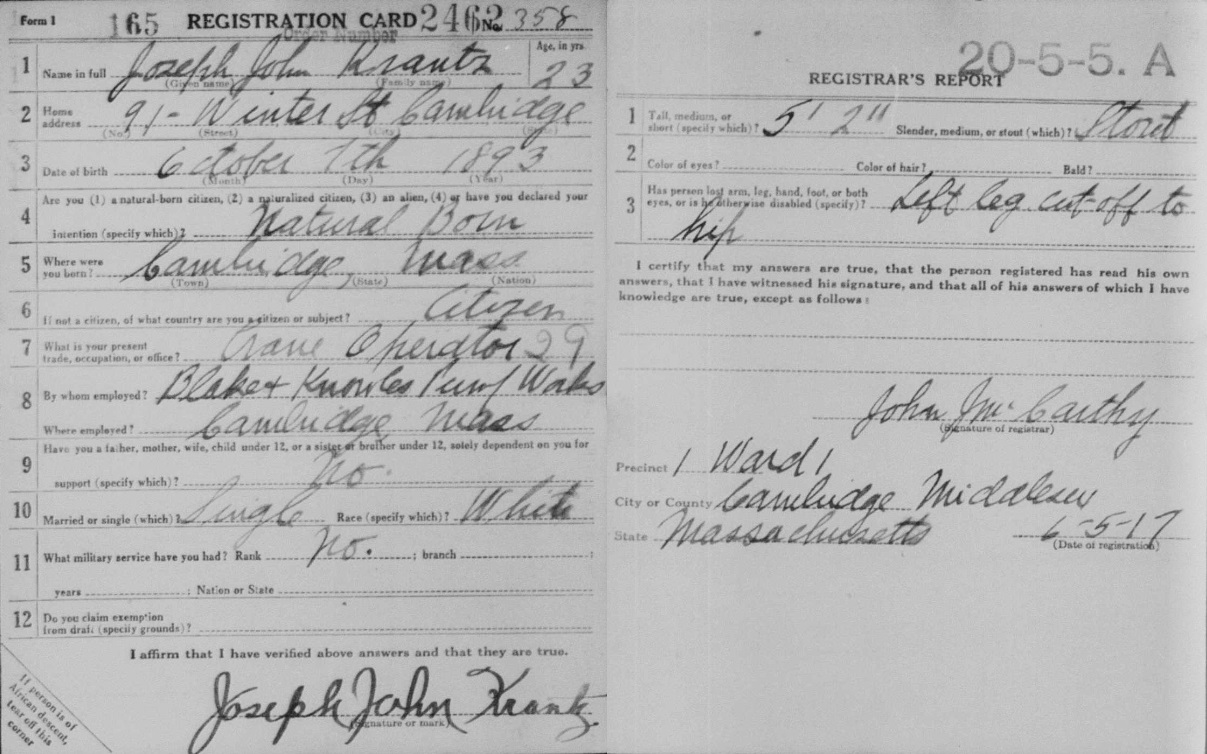 Form 1 165 REGISTRATION CARD 2462 No. 358
Order Number
1 Name in full Joseph John Krantz Age, in yrs. 23
(Given name) (Family name)
2 Home address 91- Winter St Cambridge
(No.) (Street) (City) (State)
3 Date of birth October 7th 1893
(Month) (Day) (Year)
4 Are you (1) a natural-born citizen, (2) a naturalized citizen, (3) an alien, (4) or have you declared your
intention (specify which)? Natural Born
5 Where were you born? Cambridge, Mass
(Town) (State) (Nation)
6 If not a citizen, of what country are you a citizen or subject? Citizen
7 What is your present trade, occupation, or office? Crane Operator 29
8 By whom employed? Blake & Knowles Pump Works
Where employed? Cambridge Mass
9 Have you a father, mother, wife, child under 12, or a sister or brother under 12, solely dependent on you for
support (specify which)? No.
10 Married or single (which)? Single Race (specify which)? White
11 What military service have you had? Rank No. ; branch ;
years ; Nation or State
12 Do you claim exemption
from draft (specify grounds)?
I affirm that I have verified above answers and that they are true.
Joseph John Krantz
(Signature or mark)
If person is of
African descent,
tear off this
corner
20-5-5. A
REGISTRAR'S REPORT
1 Tall, medium, or short (specify which)? 5' 2" Slender, medium, or stout (which)? Stout
2 Color of eyes? Color of hair? Bald?
3 Has person lost arm, leg, hand, foot, or both
eyes, or is he otherwise disabled (specify)? Left leg cut-off to
hip
I certify that my answers are true, that the person registered has read his own
answers, that I have witnessed his signature, and that all of his answers of which I have
knowledge are true, except as follows:
John J McCarthy
(Signature of registrar)
Precinct 1 Ward 1
City or County Cambridge Middlesex
State Massachusetts 6-5-17
(Date of registration)